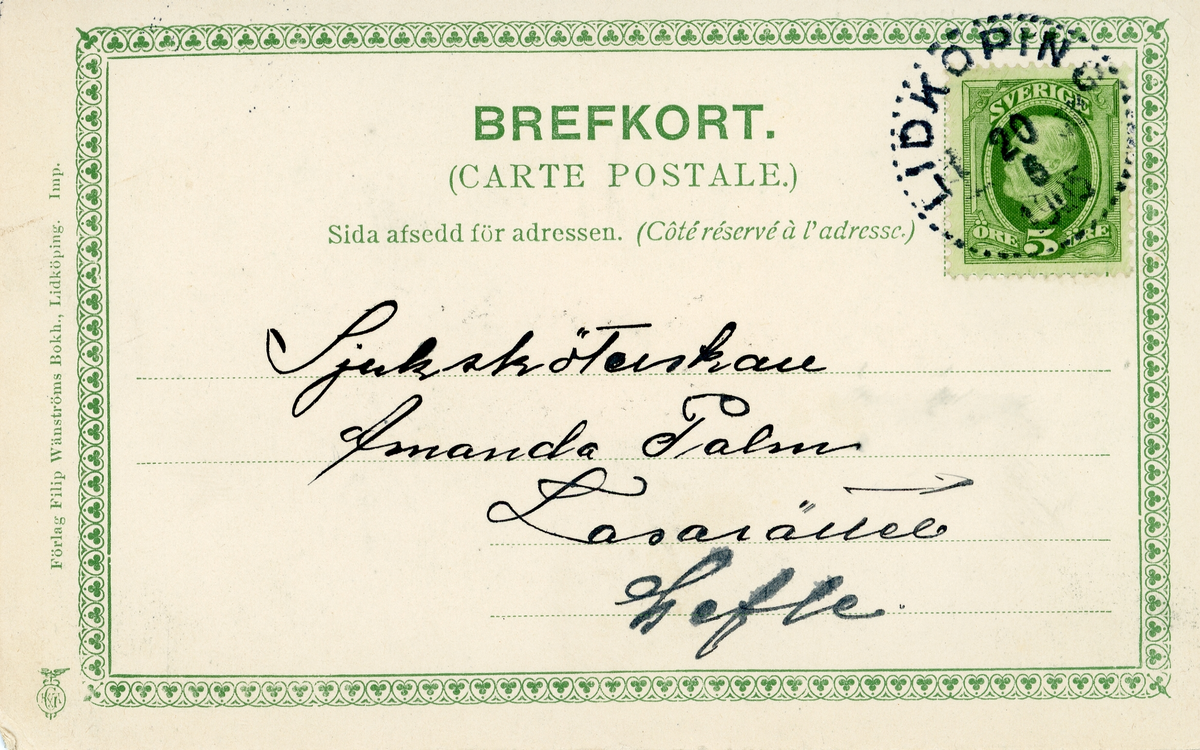 BREFKORT.
(CARTE POSTALE.)
Sida afsedd för adressen. (Côté réservé à l'adresse.)
LIDKÖPING
20
6
SVERIGE
ÖRE 5 ÖRE
Sjuksköterskan
Amanda Palm
Lasarättet
Gefle
Förlag Filip Wänströms Bokh., Lidköping. Imp.